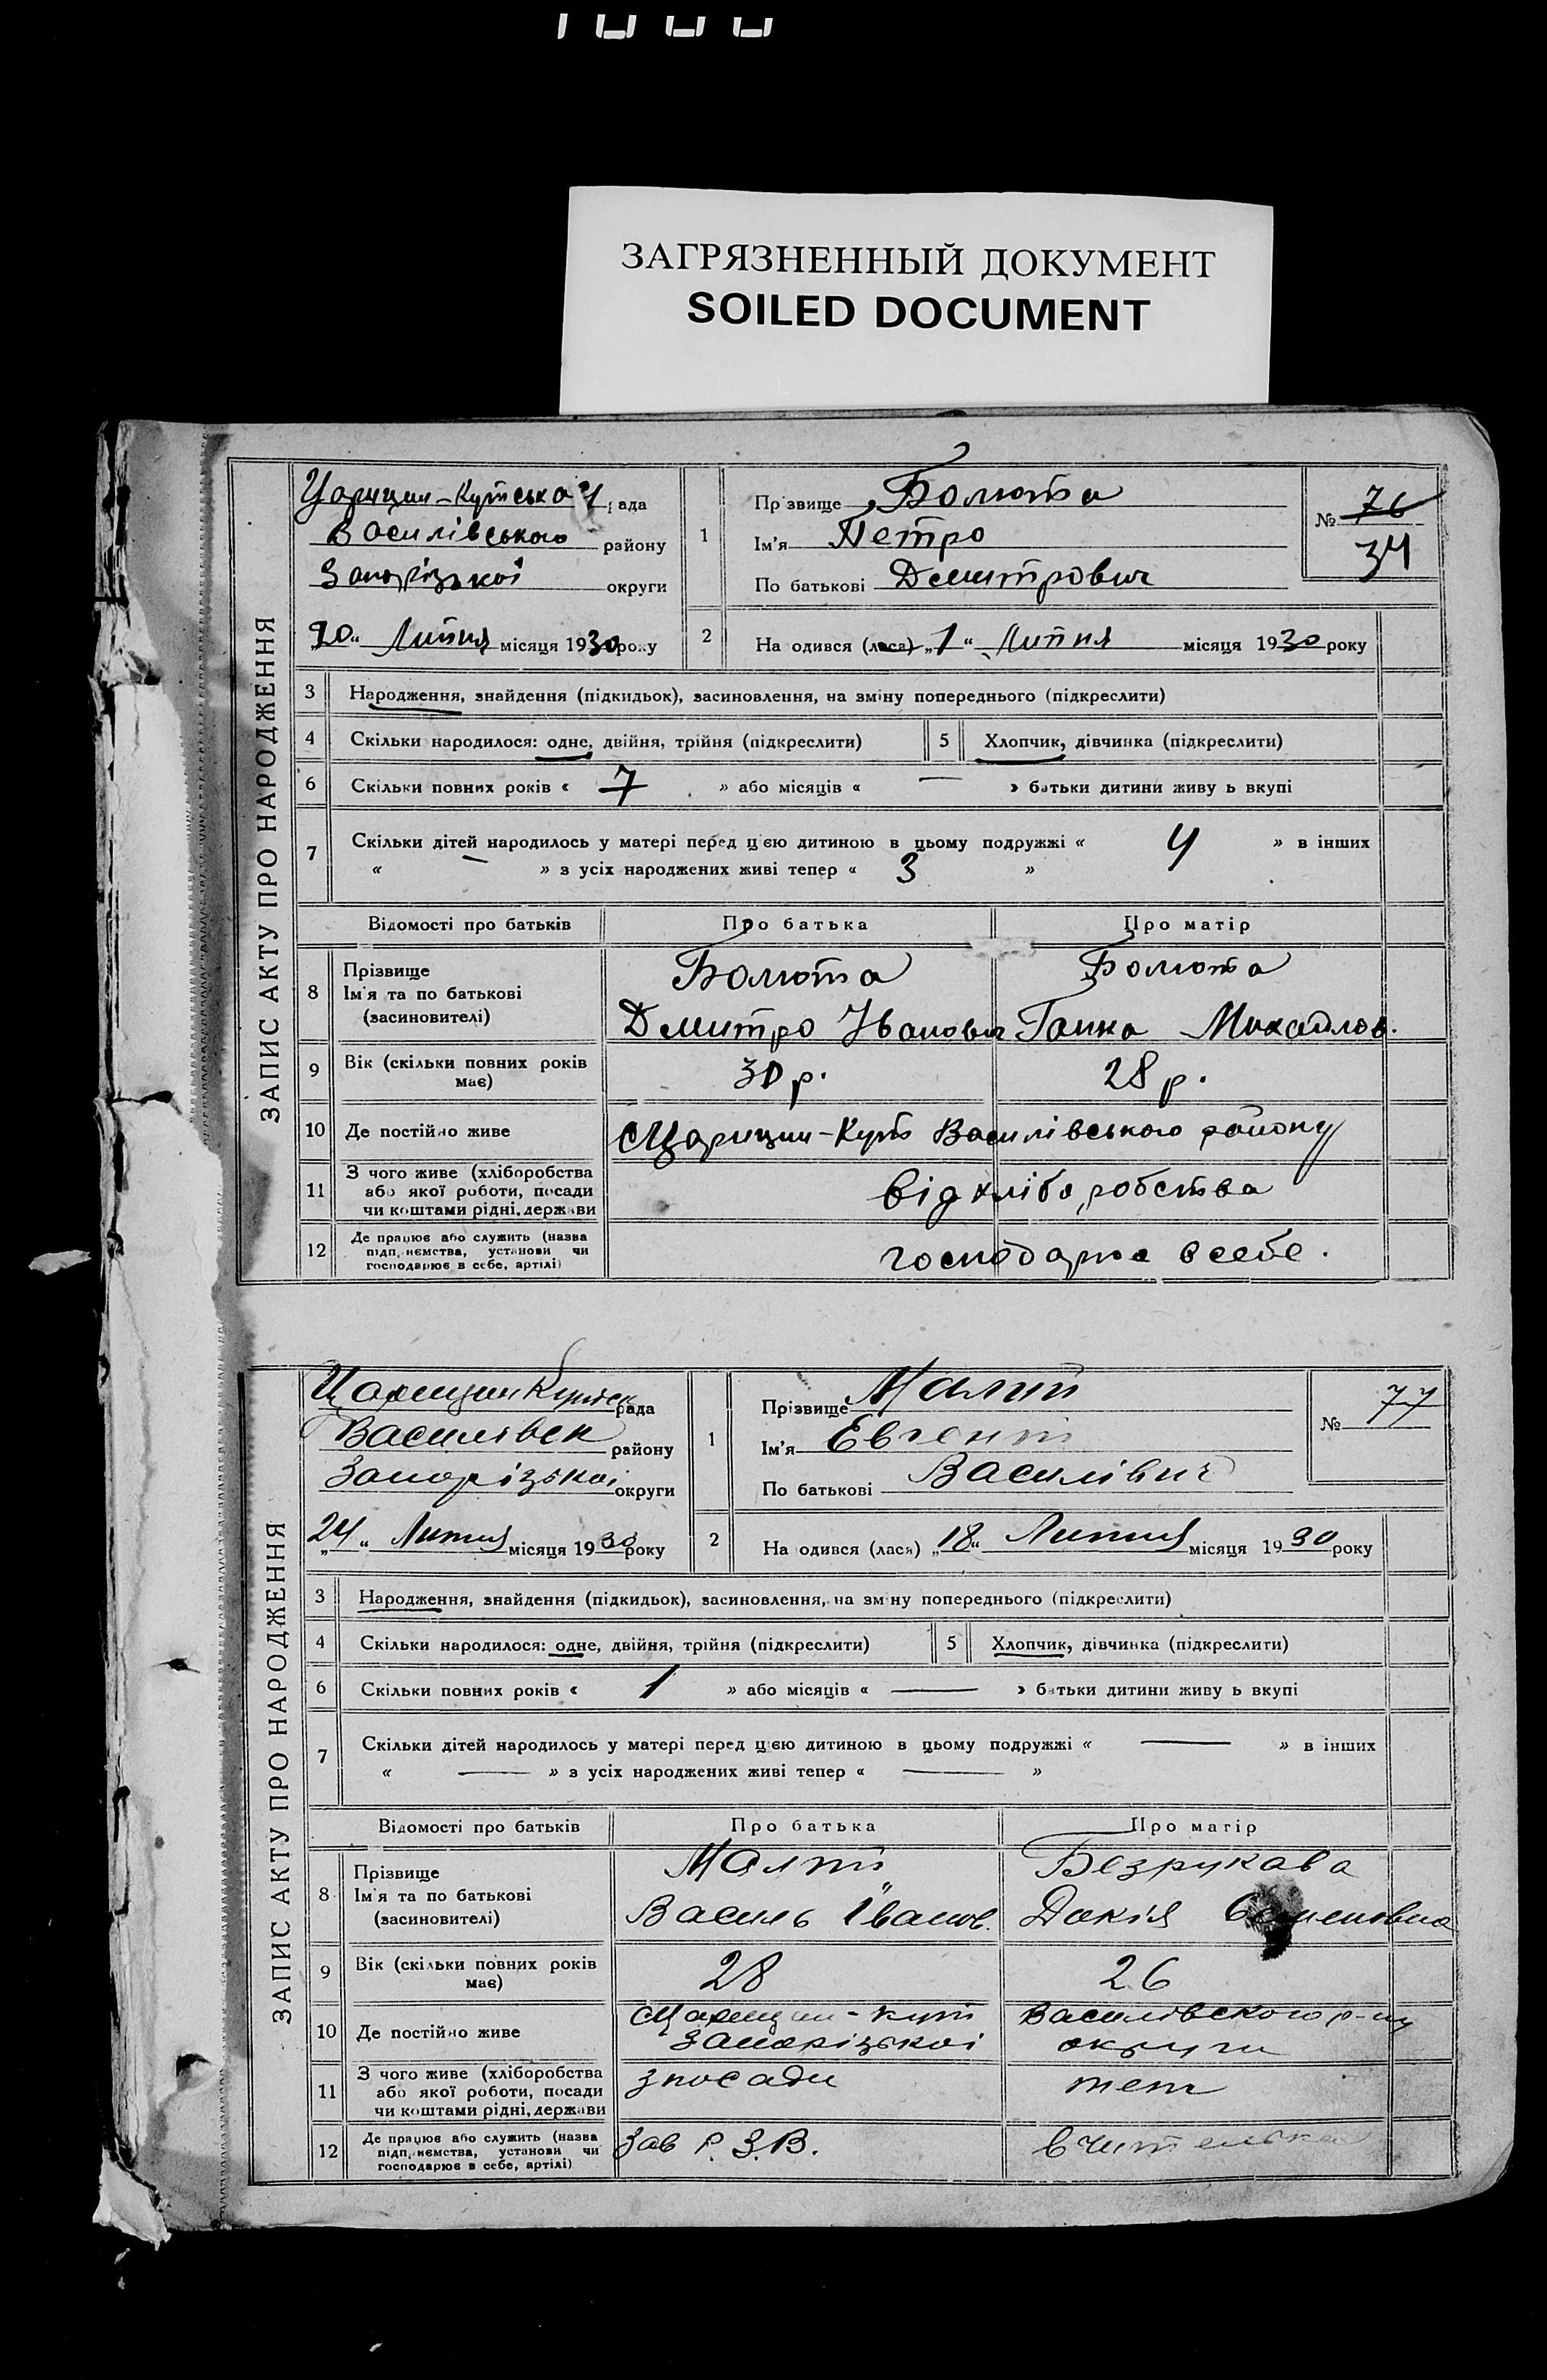 ЗАГРЯЗНЕННЫЙ ДОКУМЕНТ
SOILED DOCUMENT
ЗАПИС АКТУ ПРО НАРОДЖЕННЯ
Царицин-Кутська рада
Василівського району
Запорізької округи
"20" Липня місяця 1930 року
1
Прізвище Болюта
Ім'я Петро
По батькові Дмитрович
№ 76
34
2
Народився (лася) „1“ Липня місяця 1930 року
3 Народження, знайдення (підкидьок), засиновлення, на зміну попереднього (підкреслити)
4 Скільки народилося: одне, двійня, трійня (підкреслити) 5 Хлопчик, дівчинка (підкреслити)
6 Скільки повних років « 7 » або місяців « — » батьки дитини живуть вкупі
7 Скільки дітей народилось у матері перед цією дитиною в цьому подружжі « 4 » в інших
« — » з усіх народжених живі тепер « 3 »
Відомості про батьків Про батька Про матір
8 Прізвище
Ім'я та по батькові
(засиновителі)
Болюта Болюта
Дмитро Іванович Ганна Михайлов.
9 Вік (скільки повних років
має)
30 р. 28 р.
10 Де постійно живе с Царицин-Кут Василівського району
11 З чого живе (хліборобства
або якої роботи, посади
чи коштами рідні, держави
від хліборобства
12 Де працює або служить (назва
підприємства, установи чи
господарює в себе, артілі)
господарка в себе.
ЗАПИС АКТУ ПРО НАРОДЖЕННЯ
Царицин Кутськ рада
Василівськ району
Запорізької округи
„24“ Липня місяця 1930 року
1
Прізвище Малий
Ім'я Евгеній
По батькові Василівич
№ 77
2
Народився (лася) „18“ Липня місяця 1930 року
3 Народження, знайдення (підкидьок), засиновлення, на зміну попереднього (підкреслити)
4 Скільки народилося: одне, двійня, трійня (підкреслити) 5 Хлопчик, дівчинка (підкреслити)
6 Скільки повних років « 1 » або місяців « — » батьки дитини живуть вкупі
7 Скільки дітей народилось у матері перед цією дитиною в цьому подружжі « — » в інших
« — » з усіх народжених живі тепер « — »
Відомості про батьків Про батька Про матір
8 Прізвище
Ім'я та по батькові
(засиновителі)
Малий Безрукава
Василь Іванов. Докія Семеновна
9 Вік (скільки повних років
має)
28 26
10 Де постійно живе
с Царицин-Кут Василівского р-ну
Запорізької округи
11 З чого живе (хліборобства
або якої роботи, посади
чи коштами рідні, держави
З посади теж
12 Де працює або служить (назва
підприємства, установи чи
господарює в себе, артілі)
Зав Р.З.В. вчителька